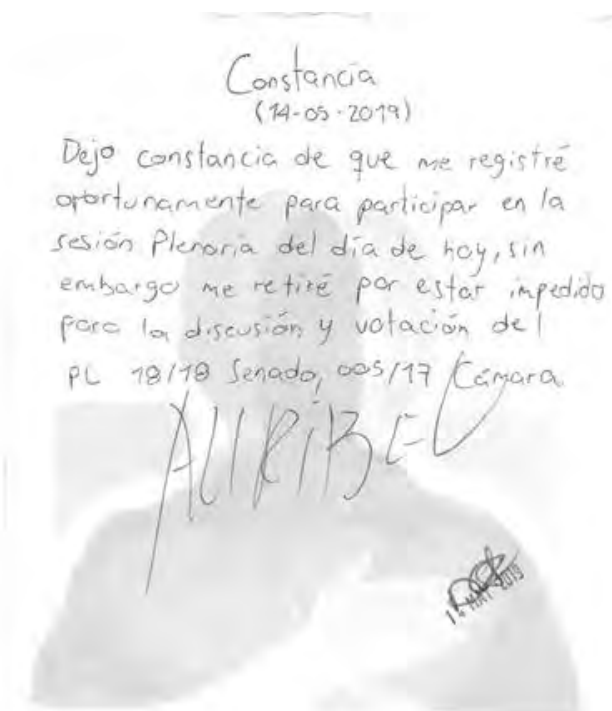 Constancia
(14-05-2019)
Dejo constancia de que me registré
oportunamente para participar en la
sesión Plenaria del día de hoy, sin
embargo me retiré por estar impedido
para la discusión y votación del
PL 18/18 Senado, 005/17 Cámara
14 MAY 2019